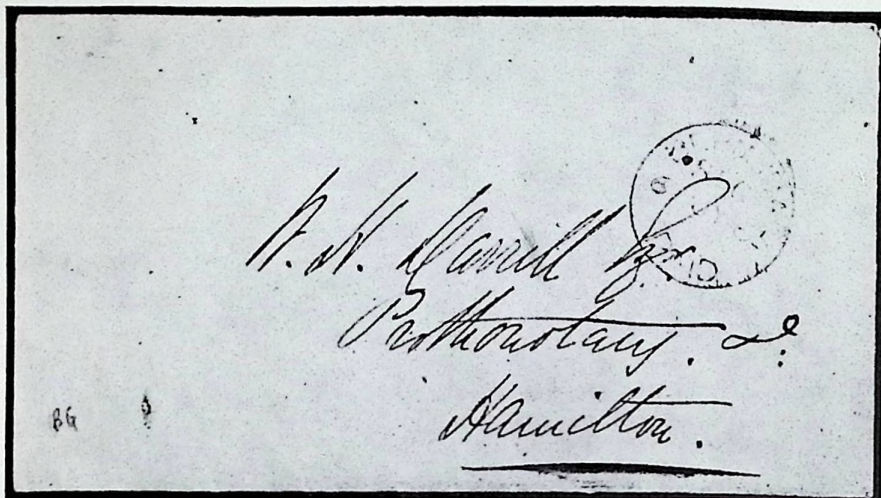 W. H. Darrell Esqr.
Prothonotary. &c:
Hamilton.
BG